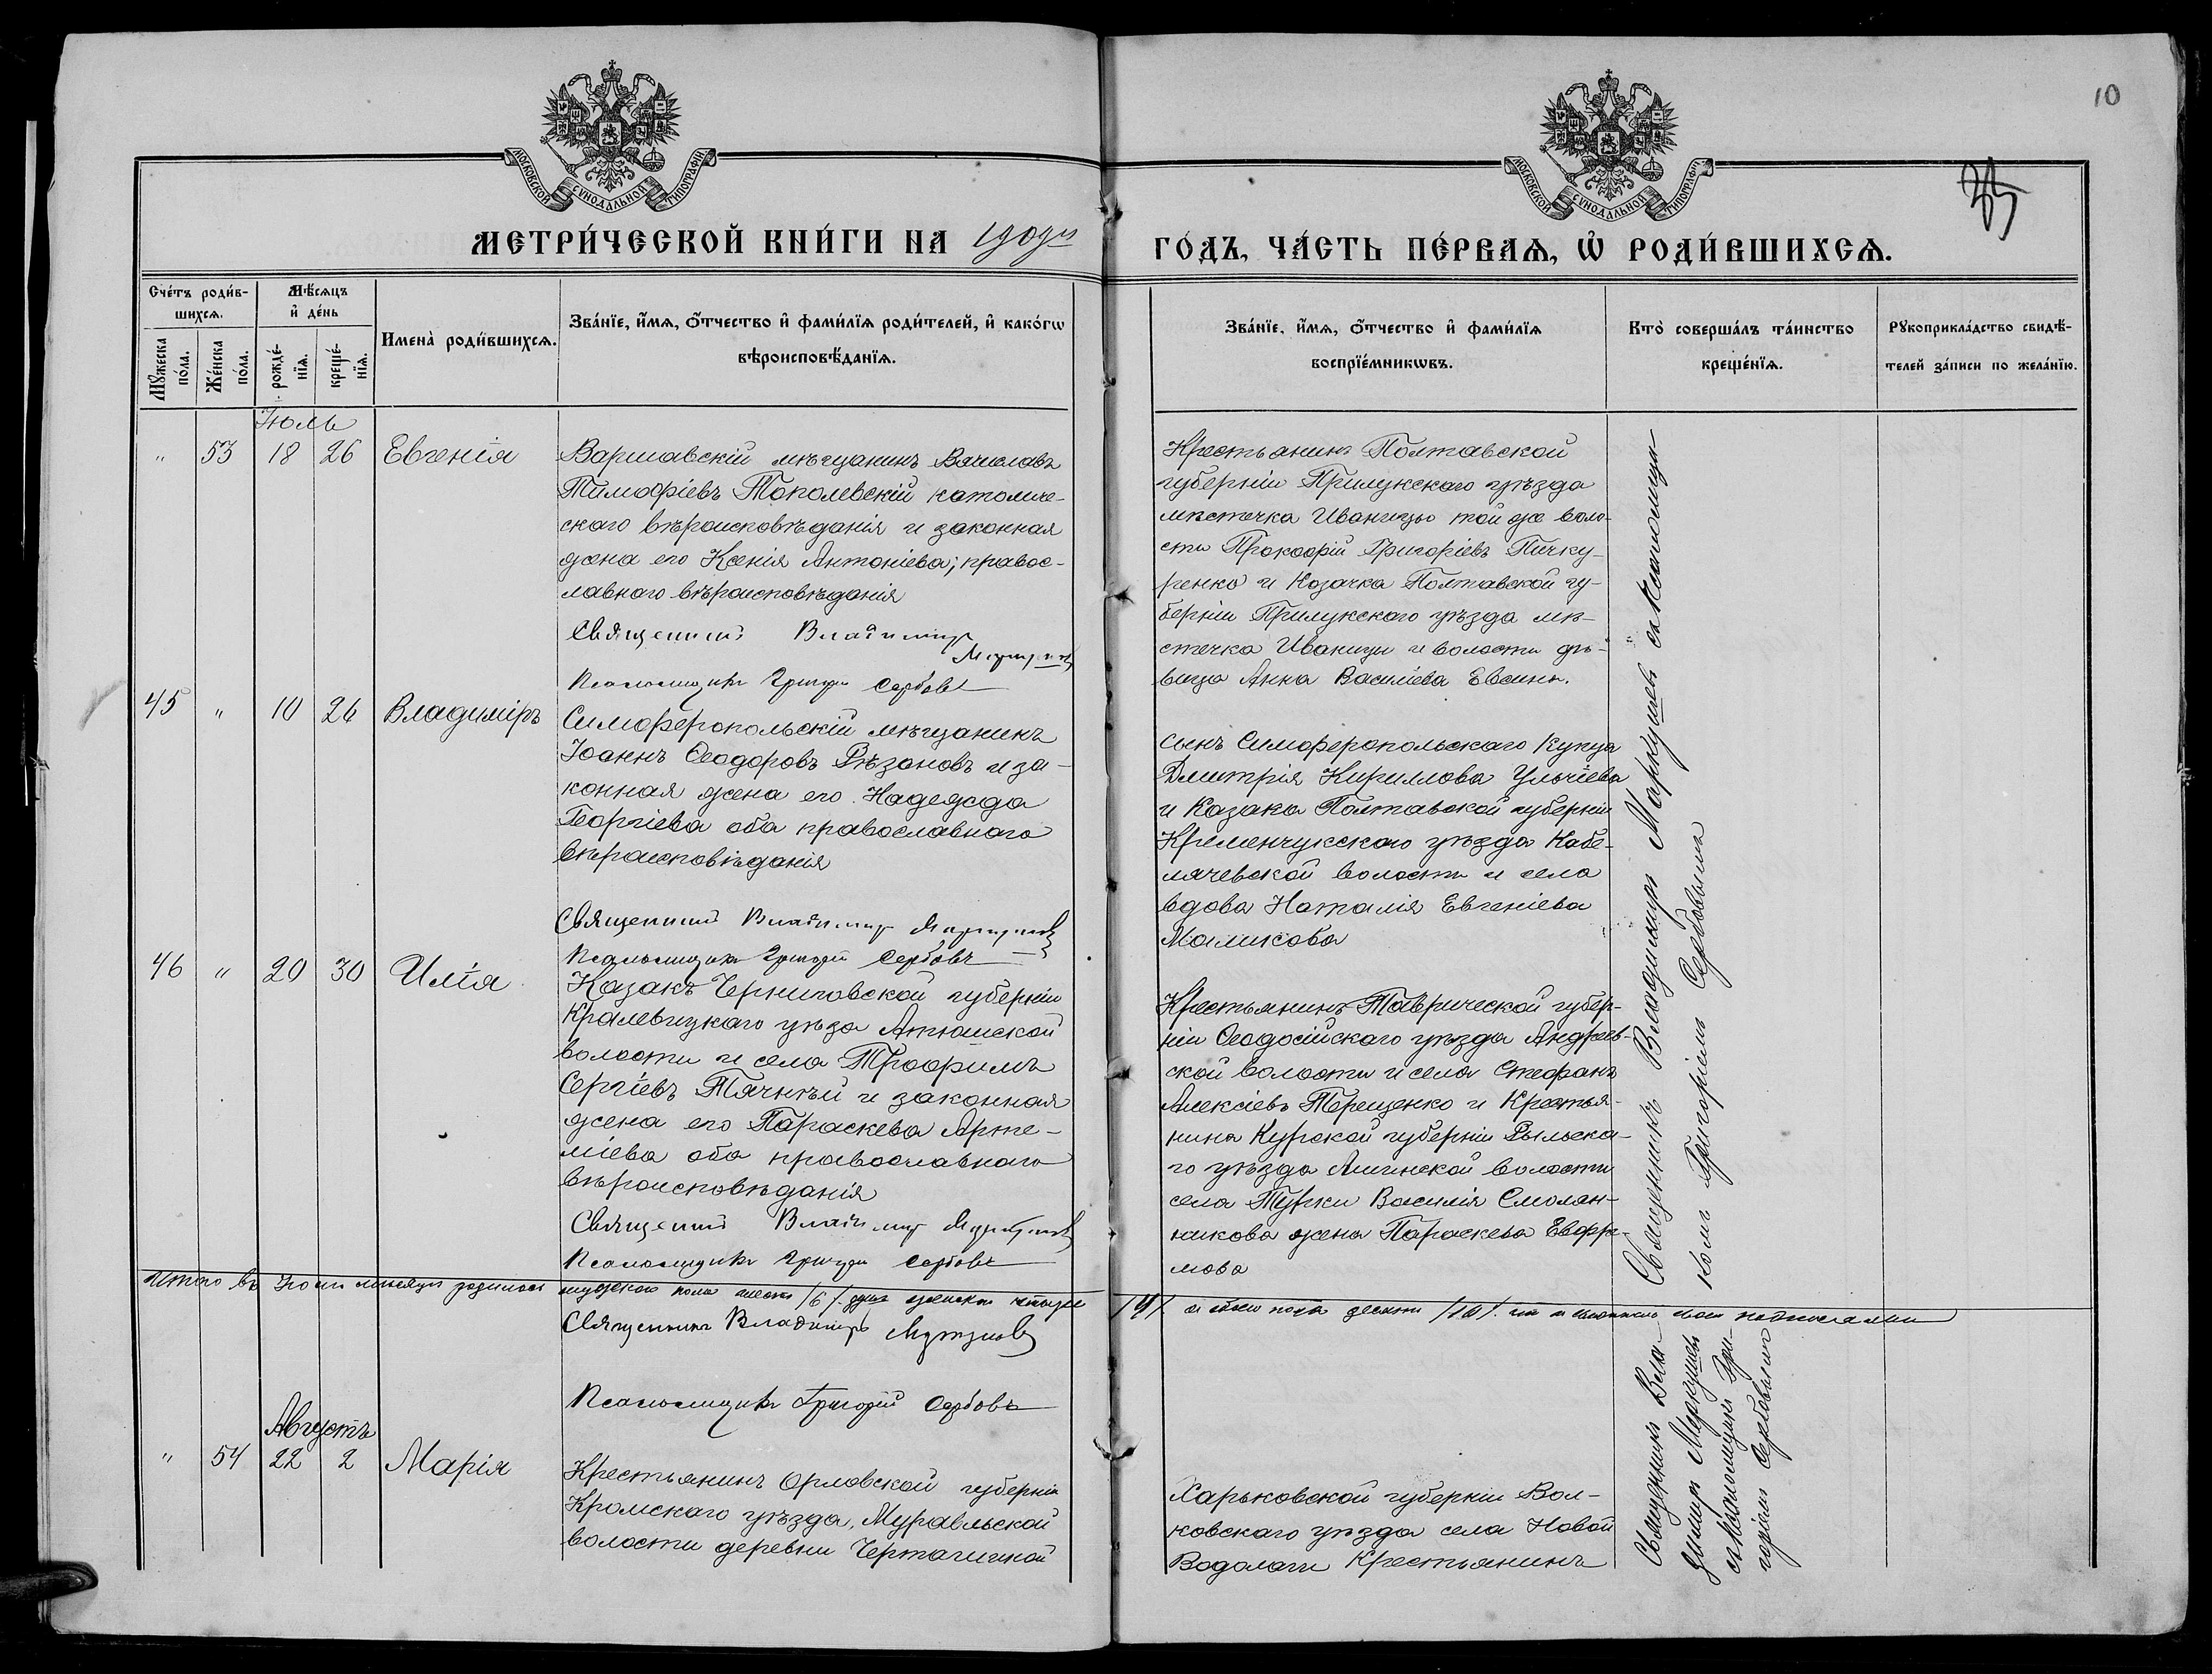 10
МОСКОВСКОЙ СѴНОДАЛЬНОЙ ТИПОГРАФІИ
МОСКОВСКОЙ СѴНОДАЛЬНОЙ ТИПОГРАФІИ
МЕТРИ́ЧЕСКОЙ КНИ́ГИ НА 1909й ГО́ДЪ, ЧА́СТЬ ПЕ́РВАѦ, Ѡ҆ РОДИ́ВШИХСѦ.
Сче́тъ роди́в-
шихсѧ.
Мꙋ́жеска по́ла.
Же́нска по́ла.
Мѣ́сѧцъ
и҆ де́нь
рожде́-
нїѧ.
креще́-
нїѧ.
Имена̀ роди́вшихсѧ.
Зва́нїе, и҆́мѧ, ѻ҆́тчество и҆ фами́лїѧ роди́телей, и҆ како́гѡ
вѣроисповѣ́данїѧ.
Зва́нїе, и҆́мѧ, ѻ҆́тчество и҆ фами́лїѧ
воспрїе́мникѡвъ.
Кто̀ соверша́лъ та́инство
креще́нїѧ.
Рꙋкоприкла́дство свидѣ́-
телей за́писи по жела́нїю.
Іюль
" 53 18 26 Евгенія
Варшавскій мѣщанинъ Вячеславъ
Тимофіевъ Тополевскій католиче-
скаго вѣроисповѣданія и законная
жена его Ксенія Антоніева, правос-
лавнаго вѣроисповѣданія
Священникъ Владимиръ
Псаломщикъ Григорій Сербовъ
Крестьянинъ Полтавской
губерніи Прилукскаго уѣзда
мѣстечка Иваницы той же воло-
сти Прокофій Григоріевъ Пичку-
ренко и Козачка Полтавской гу-
берніи Прилукскаго уѣзда мѣ-
стечка Иваницы и волости дѣ-
вица Анна Василіева Евсинъ.
45 " 10 26 Владиміръ
Симферопольскій мѣщанинъ
Іоаннъ Ѳеодоровъ Рѣзановъ и за-
конная жена его Надежда
Георгіева оба православнаго
вѣроисповѣданія
Священникъ Владимиръ
Псаломщикъ Григорій Сербовъ
сынъ Симферопольскаго Купца
Дмитрія Кириллова Ульчіева
и Казака Полтавской губерніи
Кременчукскаго уѣзда Кабе-
лячевской волости и села
вдова Наталія Евгеніева
Маликова
46 " 20 30 Илія
Казакъ Черниговской губерніи
Кралевицкаго уѣзда Атюшской
волости и села Трофимъ
Сергіевъ Тячнѣй и законная
жена его Параскева Арте-
міева оба православнаго
вѣроисповѣданія
Священникъ Владимиръ
Псаломщикъ Григорій Сербовъ
Крестьянинъ Таврической губер-
ніи Ѳеодосійскаго уѣзда Андреев-
ской волости и села Стефанъ
Алексіевъ Терещенко и Крестья-
нина Курской губерніи Рыльска-
го уѣзда волости
села Турки Василія Смолян-
никова жена Параскева Евфи-
мова
Священникъ Владимиръ Маркушевъ съ псаломщи-
комъ Григоріемъ Сербовымъ
Итого въ Іюли мѣсяцѣ родилось мужескаго пола шесть /6/ душъ женска четыре /4/ а обоего пола десять /10/.
Священникъ Владимиръ
Псаломщикъ Григорій Сербовъ
Августъ
" 54 22 2 Марія
Крестьянинъ Орловской губерніи
Кромскаго уѣзда, Муравльской
волости деревни
Харьковской губерніи Вол-
ковскаго уѣзда села Новой
Водолаги Крестьянинъ
Священникъ Вла-
димиръ Маркушевъ
съ псаломщикомъ Гри-
горіемъ Сербовымъ